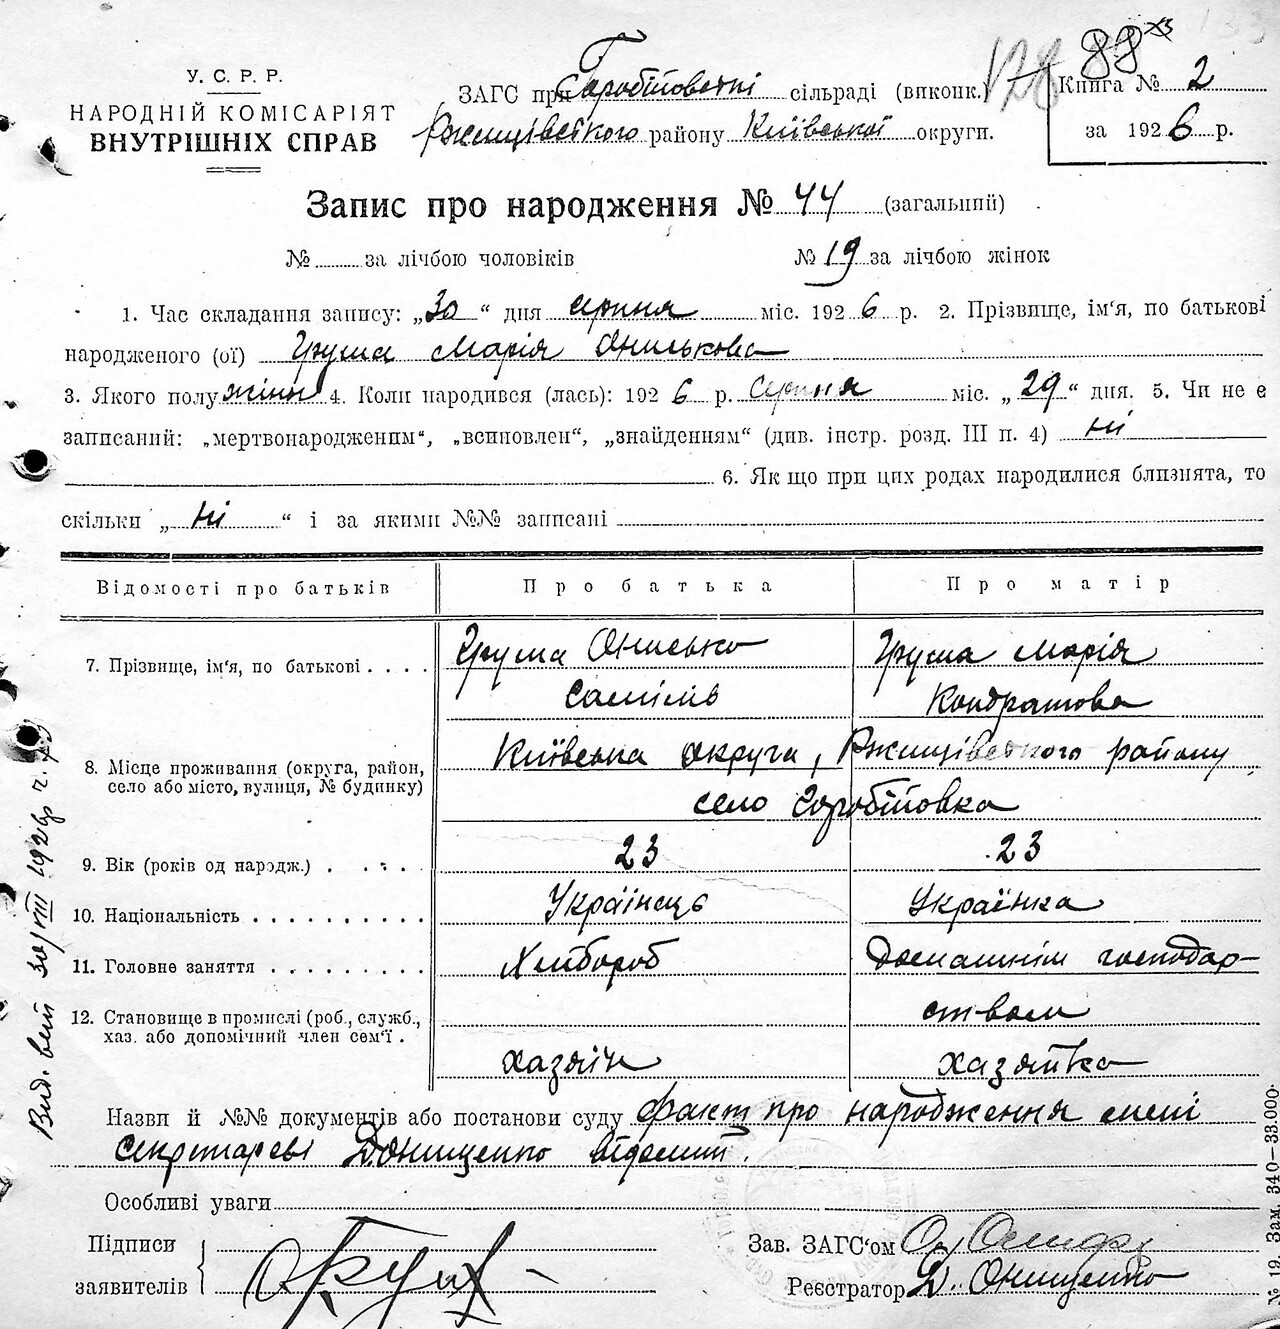 88
128
У. С. Р. Р.
НАРОДНІЙ КОМІСАРІЯТ
ВНУТРІШНІХ СПРАВ
ЗАГС при сільраді (виконк.)
Ржищівського району Київської округи.
Книга № 2
за 1926 р.
Запис про народження № 44 (загальний)
№ за лічбою чоловіків № 19 за лічбою жінок
1. Час складання запису: „30“ дня серпня міс. 1926 р. 2. Прізвище, ім‘я, по батькові
народженого (ої) Груша Марія Онилькова
3. Якого полу жіни 4. Коли народився (лась): 1926 р. серпня міс. „29“ дня. 5. Чи не є
записаний: „мертвонародженим“, „всиновлен“, „знайденням“ (див. інстр. розд. III п. 4) ні
6. Як що при цих родах народилися близнята, то
скільки „ні“ і за якими №№ записані
Відомості про батьків Про батька Про матір
7. Прізвище, ім‘я, по батькові . . . . Груша Онисько Груша Марія
Кондратова
8. Місце проживання (округа, район, село або місто, вулиця, № будинку) Київська округи, Ржищівського району
село Горобіївка
9. Вік (років од народж.) . . . . 23 23
10. Національність . . . . . . . . . Українець Українка
11. Головне заняття . . . . . . . . Хлібороб Домашнім господар-
ством
12. Становище в промислі (роб., служб., хаз. або допомічний член сем‘ї . хазяїн хазяйка
Назви й №№ документів або постанови суду факт про народження мені
секретареві Д. Онищенко відомий.
Особливі уваги
Підписи
заявителів
Зав. ЗАГС‘ом
Реєстратор Д. Онищенко
Вид. 30/VIII 1926р ч.
№ 19. Зам. 340—33.000.